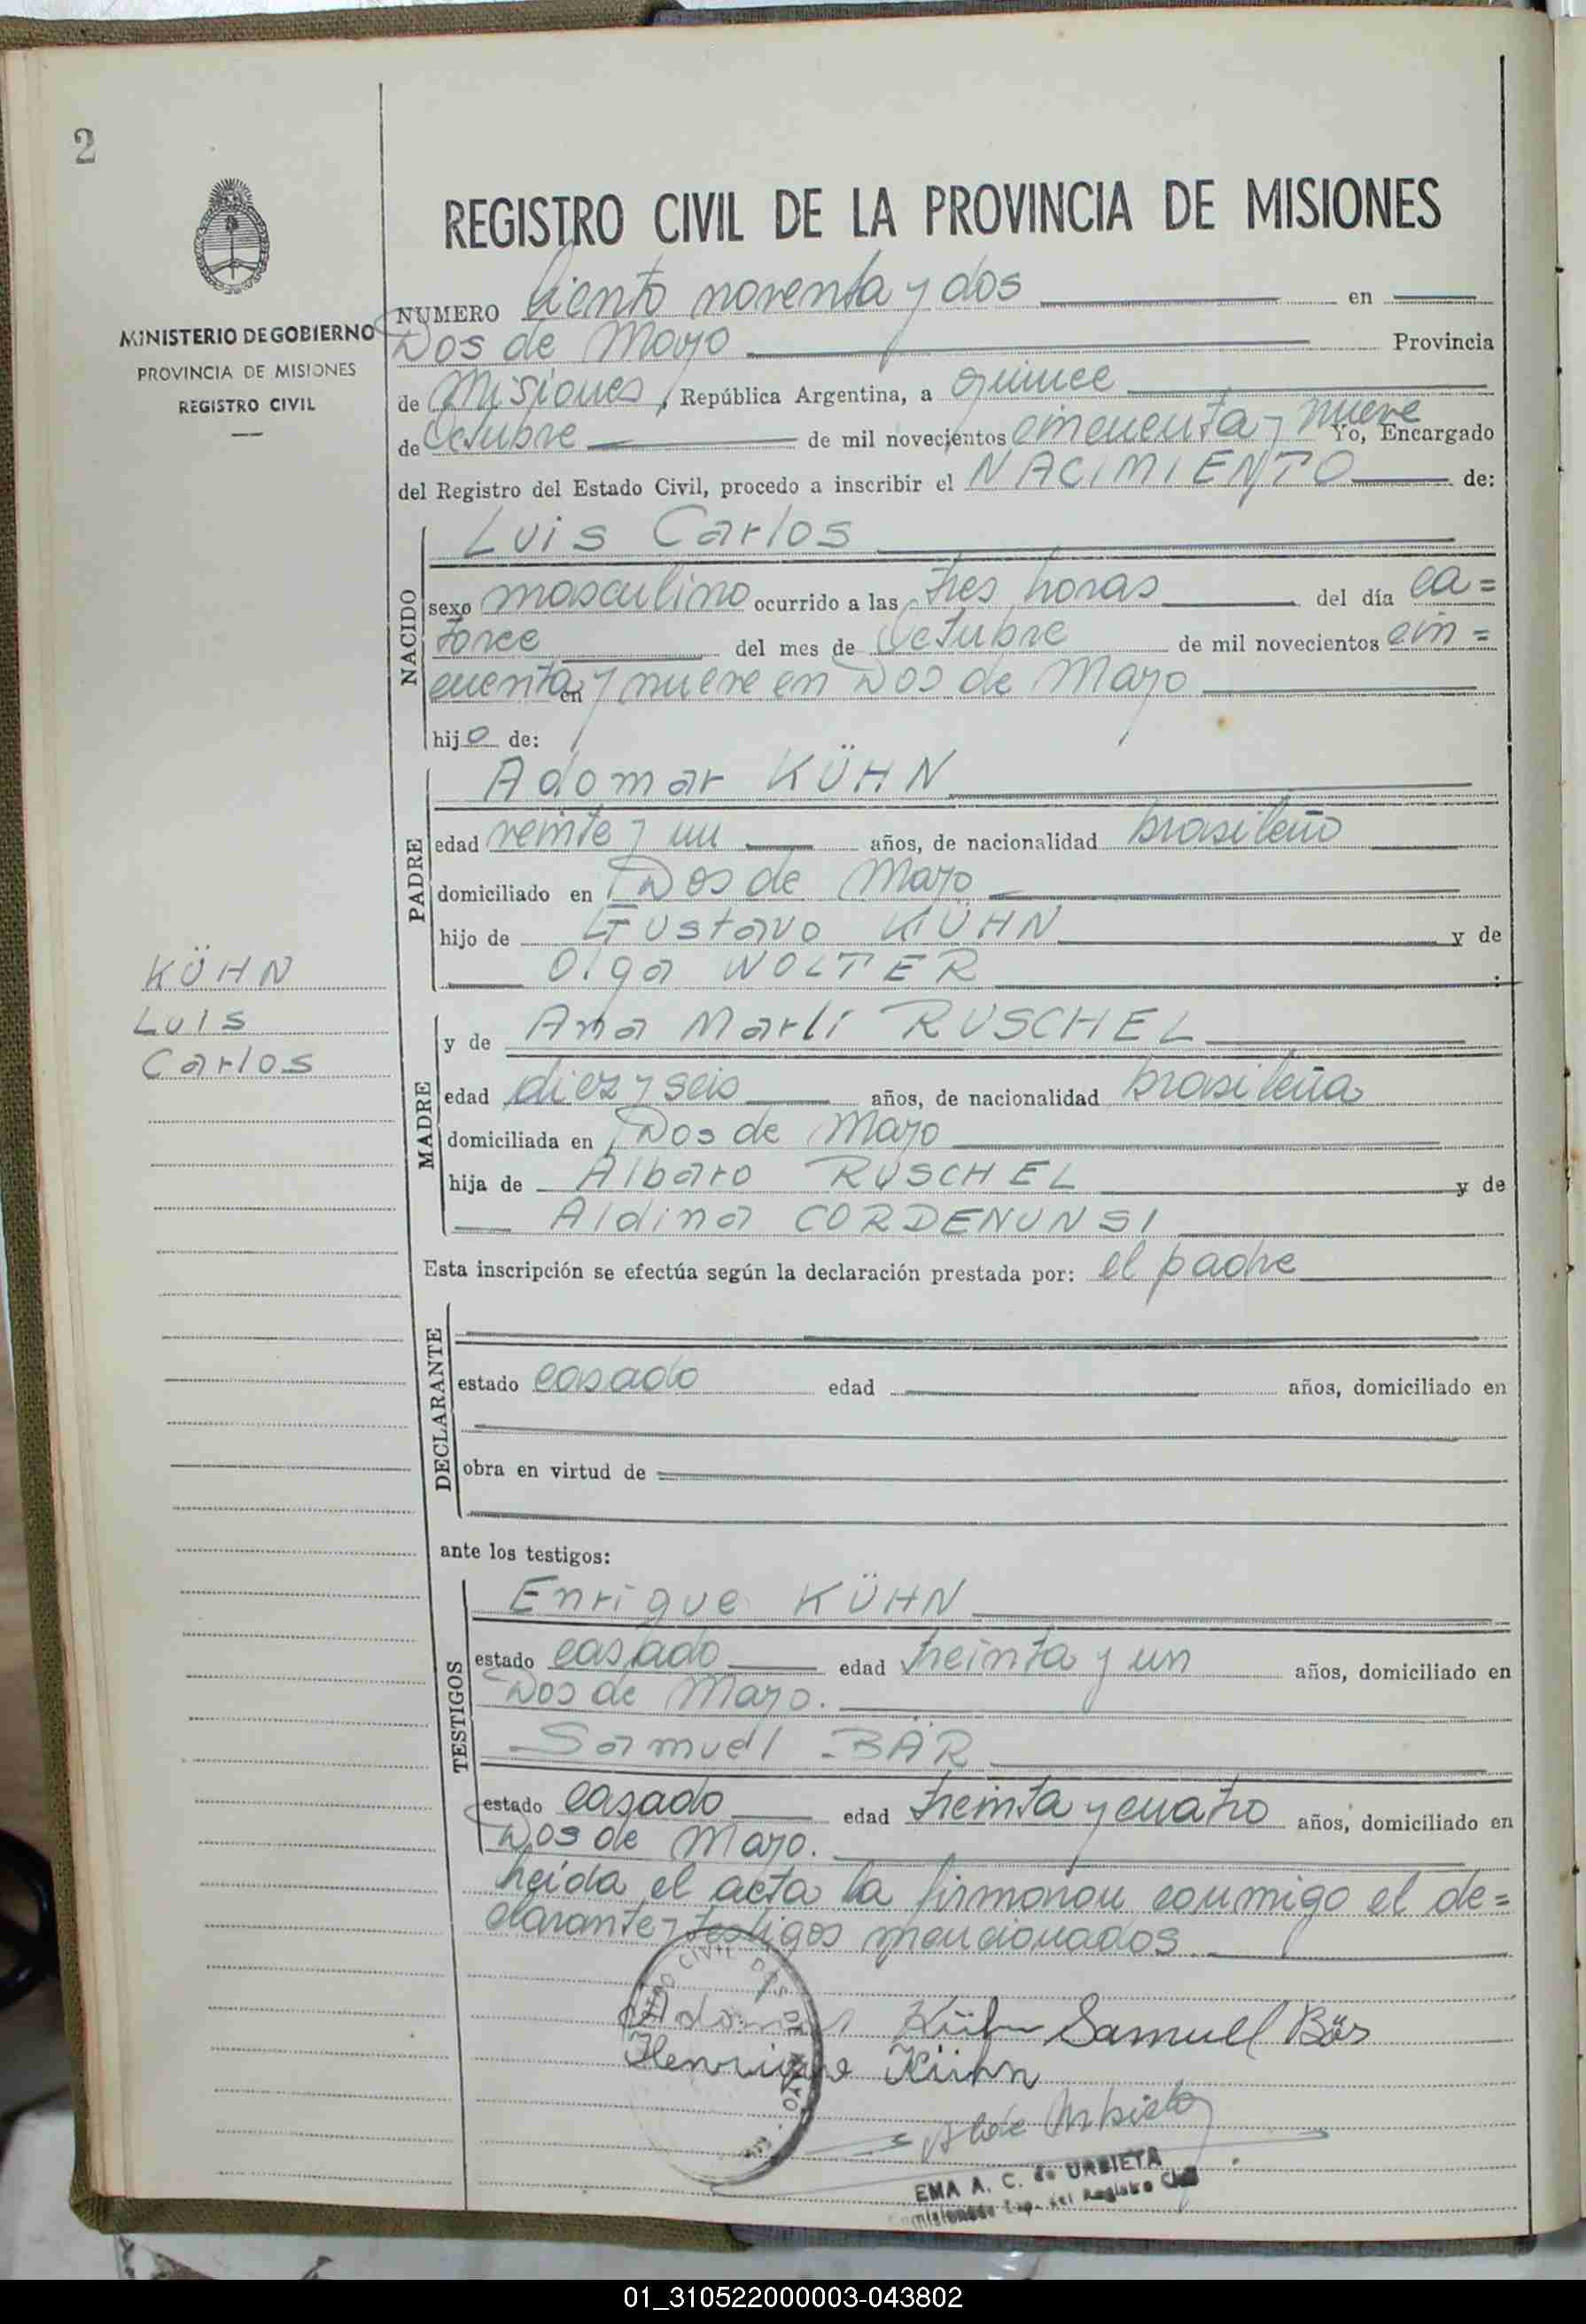 2
MINISTERIO DE GOBIERNO
PROVINCIA DE MISIONES
REGISTRO CIVIL
KÜHN
Luis
Carlos
REGISTRO CIVIL DE LA PROVINCIA DE MISIONES
NUMERO Ciento noventa y dos en
Dos de Mayo Provincia
de Misiones, República Argentina, a quince
de Octubre de mil novecientos cincuenta y nueve Yo, Encargado
del Registro del Estado Civil, procedo a inscribir el NACIMIENTO de:
NACIDO
Luis Carlos
sexo masculino ocurrido a las tres horas del día ca=
torce del mes de Octubre de mil novecientos cin=
cuenta y nueve en Dos de Mayo
en
hijo de:
PADRE
Adomar KÜHN
edad veinte y un años, de nacionalidad brasileño
domiciliado en Dos de Mayo
hijo de Gustavo KÜHN y de
Olga WOLTER
MADRE
y de Ana Marli RUSCHEL
edad diez y seis años, de nacionalidad brasileña
domiciliada en Dos de Mayo
hija de Albaro RUSCHEL y de
Aldina CORDENUNSI
Esta inscripción se efectúa según la declaración prestada por: el padre
DECLARANTE
estado casado edad años, domiciliado en
obra en virtud de
ante los testigos:
TESTIGOS
Enrique KÜHN
estado casado edad treinta y un años, domiciliado en
Dos de Mayo.
Samuel BÄR
estado casado edad treinta y cuatro años, domiciliado en
Dos de Mayo.
Leida el acta la firmaron conmigo el de=
clarante y testigos mencionados
CIVIL DOS DE MAYO
Adomar Kühn Samuel Bär
Henrique Kühn
EMA A. C. de URBIETA
del Registro Civil
01_310522000003-043802